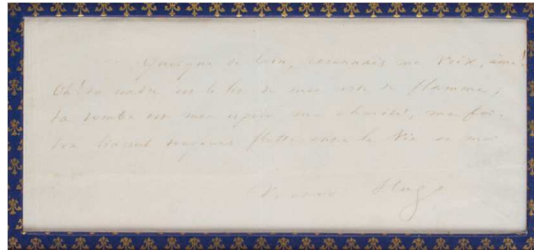 Quoique de loin, reconnais ma voix, âme!
Oh! ta cendre est le lit de mes reste de flamme;
Ta tombe est mon espoir, ma charité, ma foi;
Ton linceul toujours flotte entre la vie et moi
Victor Hugo